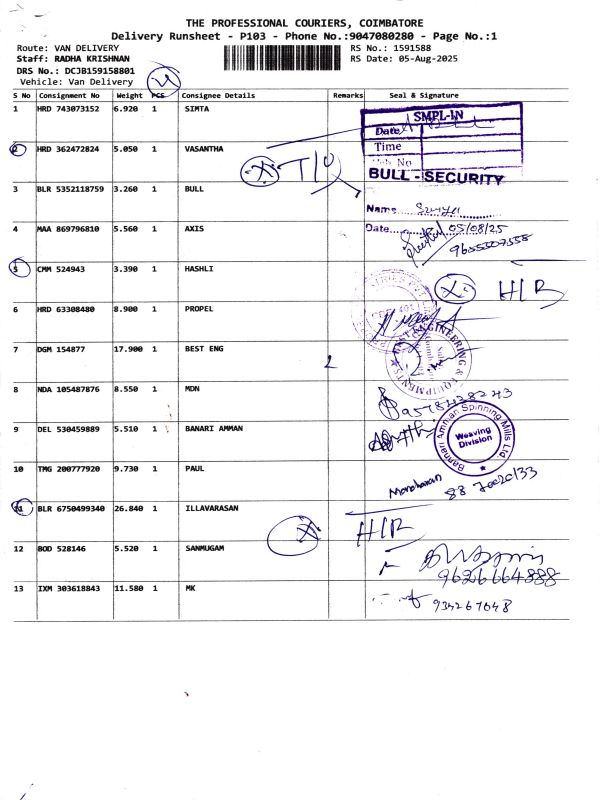 THE PROFESSIONAL COURIERS, COIMBATORE
Delivery Runsheet - P103 - Phone No.:9047080280 - Page No.:1
Route: VAN DELIVERY
RS No.: 1591588
Staff: RADHA KRISHNAN
RS Date: 05-Aug-2025
DRS No.: DCJB159158801
Vehicle: Van Delivery
S No Consignment No Weight PCS Consignee Details Remarks Seal & Signature
1 HRD 743073152 6.920 1 SIMTA
SMPL-IN
Date
Time
2 HRD 362472824 5.050 1 VASANTHA
No
BULL - SECURITY
3 BLR 5352118759 3.260 1 BULL
Name
4 MAA 869796810 5.560 1 AXIS
Date 05/08/25
5 CMM 524943 3.390 1 HASHLI
6 HRD 63308480 8.900 1 PROPEL
7 DGM 154877 17.900 1 BEST ENG
ENGINEERING & EQUIPMENTS
8 NDA 105487876 8.550 1 MDN
9 DEL 530459889 5.510 1 BANARI AMMAN
Bannari Amman Spinning Mills Ltd
Weaving
Division
10 TMG 200777920 9.730 1 PAUL
Manoharan
11 BLR 6750499340 26.840 1 ILLAVARASAN
12 BOD 528146 5.520 1 SANMUGAM
9626664888
13 IXM 303618843 11.580 1 MK